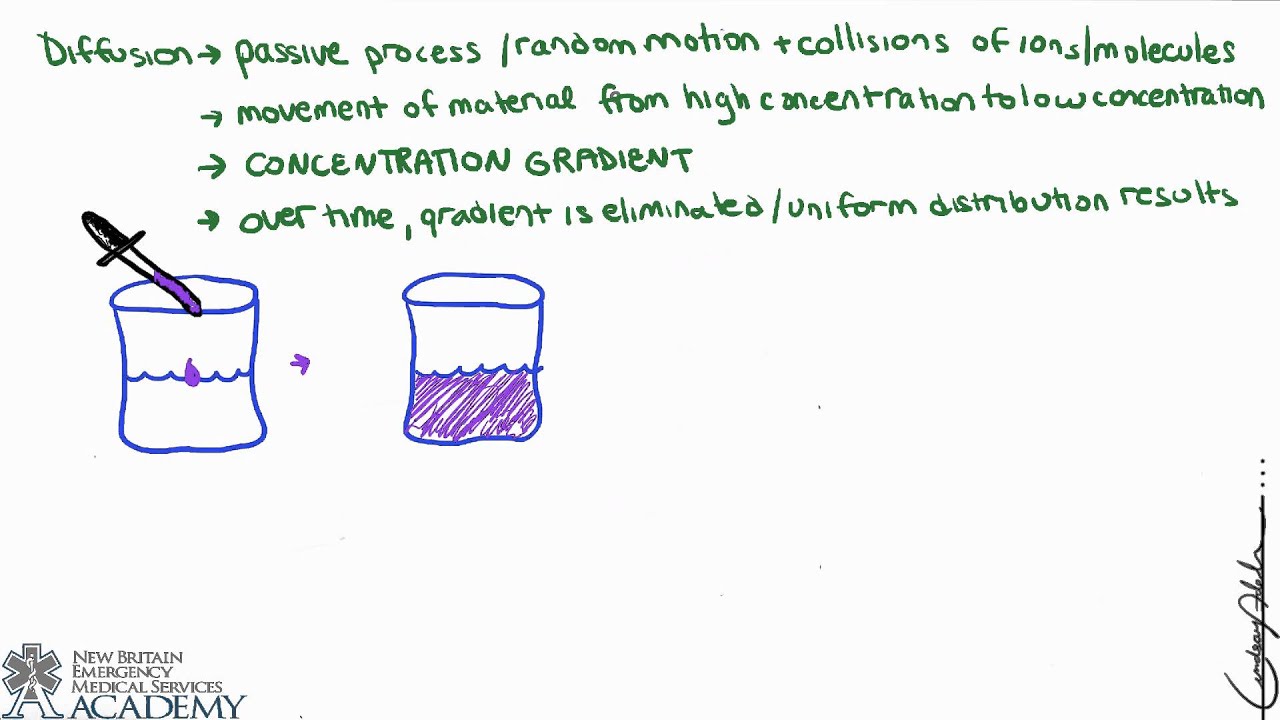 Diffusion → passive process / random motion + collisions of ions/molecules
→ movement of material from high concentration to low concentration
→ CONCENTRATION GRADIENT
→ over time, gradient is eliminated / uniform distribution results
NEW BRITAIN
EMERGENCY
MEDICAL SERVICES
ACADEMY
Lindsay